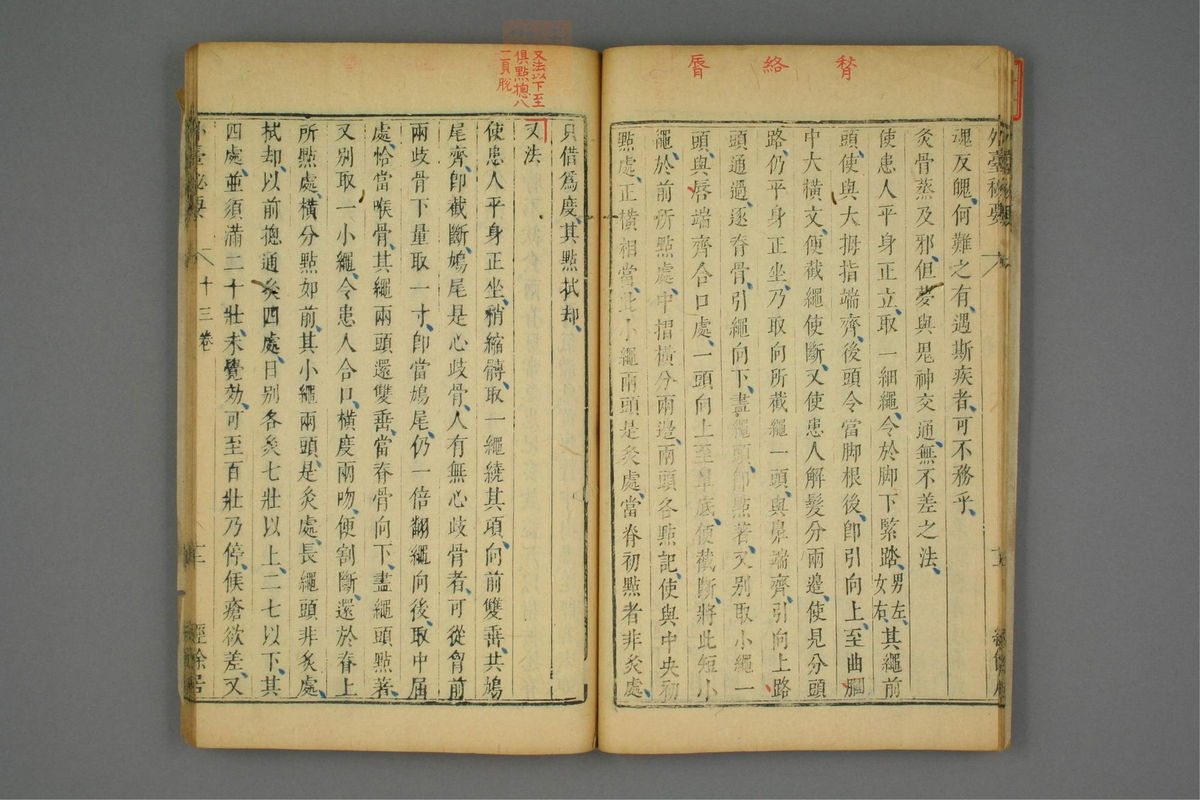 脊 絡 膂
外臺秘要
魂反魄何難之有遇斯疾者可不務乎
灸骨蒸及邪但夢與鬼神交通無不差之法
使患人平身正立取一細繩令於脚下緊踏男左女右其繩前
頭使與大拇指端齊後頭令當脚根後即引向上至曲䐐
中大橫文便截繩使斷又使患人解髮分兩邊使見分頭
路仍平身正坐乃取向所截繩一頭與鼻端齊引向上路
頭通過逐脊骨引繩向下盡繩頭即點著又別取小繩一
頭與唇端齊合口處一頭向上至鼻底便截斷將此短小
繩於前所點處中摺橫分兩邊兩頭各點記使與中央初
點處正橫相當此小繩兩頭是灸處當脊初點者非灸處
又法以下至
俱點摠八
一頁脫
只借爲度其點拭却
又法
使患人平身正坐稍縮髆取一繩繞其項向前雙垂共鳩
尾齊即截斷鳩尾是心歧骨人有無心歧骨者可從胷前
兩歧骨下量取一寸即當鳩尾仍一倍翻繩向後取中屈
處恰當喉骨其繩兩頭還雙垂當脊骨向下盡繩頭點著
又別取一小繩令患人合口橫度兩吻便割斷還於脊上
所點處橫分點如前其小繩兩頭是灸處長繩頭非灸處
拭却以前摠通灸四處日別各灸七壯以上二七以下其
四處並須滿二十壯未覺効可至百壯乃停候瘡欲差又
外臺秘要 十三卷 經餘居